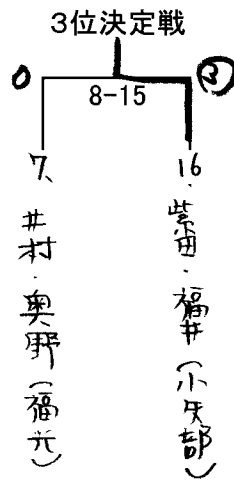 3位決定戦
0 ③
8-15
7、井村・奥野（福光）
16.柴田・福井（小矢部）